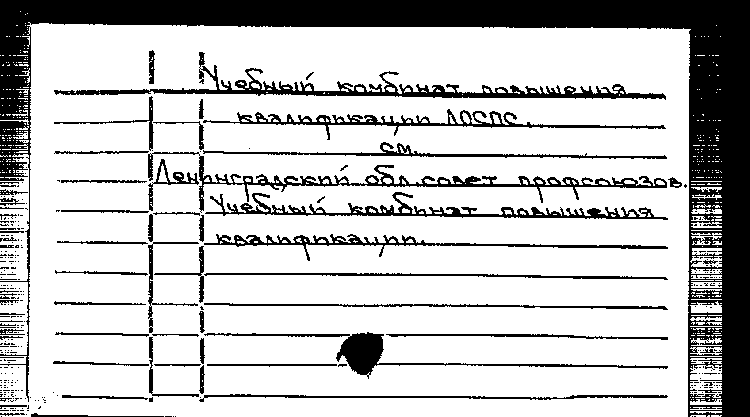 Учебный комбинат повышения
квалификации ЛОСПС.
см.
Ленинградский обл. совет профсоюзов.
Учебный комбинат повышения
квалификации.